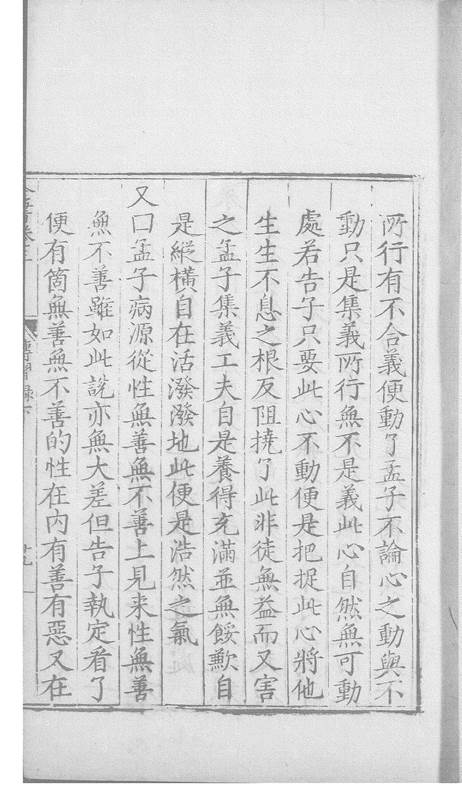 所行有不合義便動了孟子不論心之動與不
動只是集義所行無不是義此心自然無可動
處若告子只要此心不動便是把捉此心將他
生生不息之根反阻撓了此非徒無益而又害
之孟子集義工夫自是養得充滿並無餒歉自
是縱橫自在活潑潑地此便是浩然之氣
又曰孟子病源從性無善無不善上見來性無善
無不善雖如此說亦無大差但告子執定看了
便有箇無善無不善的性在內有善有惡又在
全書卷三 傳習錄下